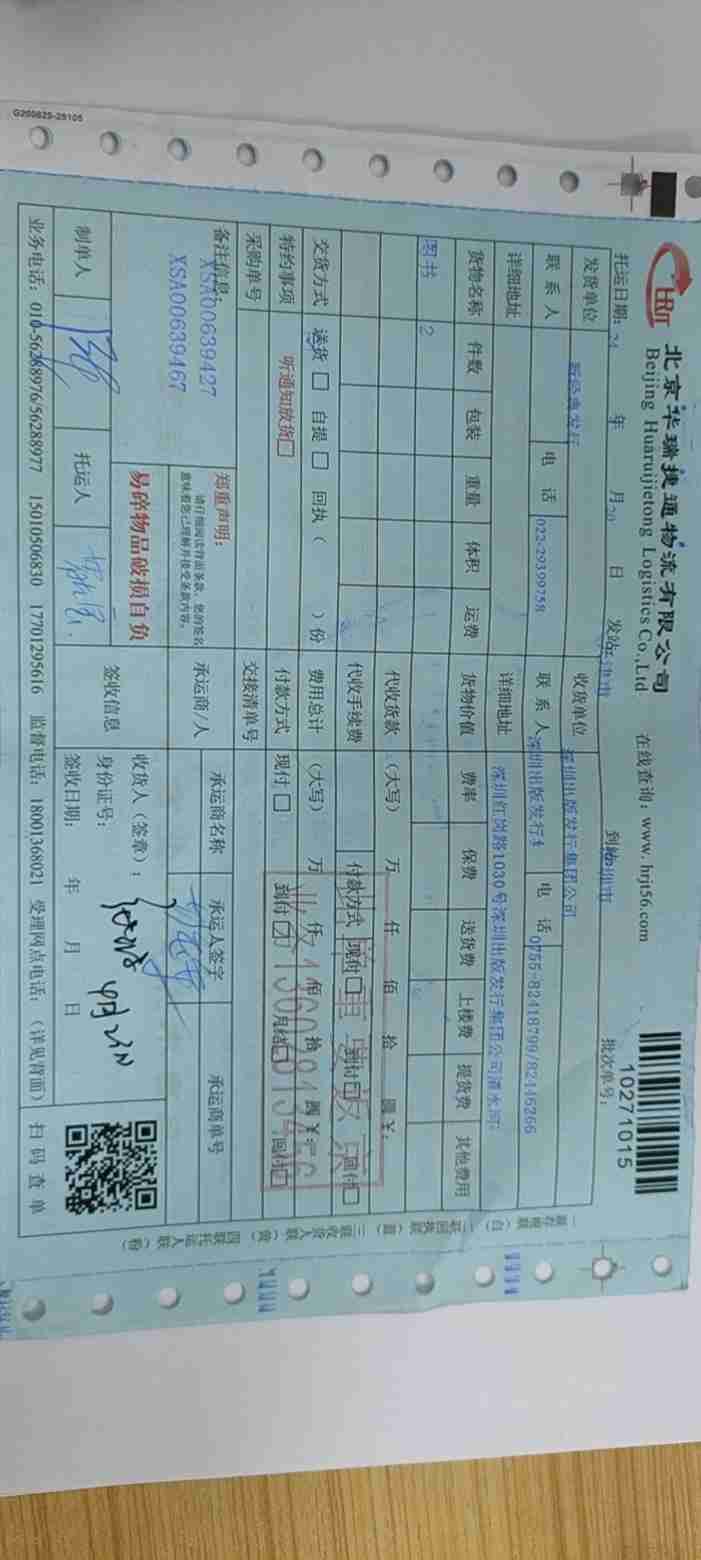 G200825-28105
HRJT
北京华瑞捷通物流有限公司
Beijing Huaruijietong Logistics Co.,Ltd
在线查询：www.hrjt56.com
10271015
托运日期：24 年 月20 日 发站：天津市 到站：深圳市 批次单号：
发货单位 新经典发行 收货单位 深圳出版发行集团公司
联系人 电话 022-29399758 联系人 深圳出版发行 电话 0755-82418799/82446266
详细地址 详细地址 深圳红岗路1030号深圳出版发行集团公司清水河
货物名称 件数 包装 重量 体积 运费 货物价值 费率 保费 送货费 上楼费 提货费 其他费用
图书 2
代收货款 （大写） 万 仟 佰 拾 圆 ¥：
代收手续费 付款方式 现付□ 到付□ 回付□
交货方式 送货 □ 自提 □ 回执（ ）份 费用总计 （大写） 万 仟 佰 拾 圆 ¥：
特约事项 听通知放货□ 付款方式 现付 □ 到付 ☑ 月结□ 回付□
采购单号 交接清单号
备注信息：
XSA00639427
XSA00639467
郑重声明：
请仔细阅读背面条款，您的签名
意味着您已理解并接受条款内容。
易碎物品破损自负
承运商/人 承运商名称 承运人签字 承运商单号
制单人 托运人 签收信息 收货人（签章）：
身份证号：
签收日期： 年 月 日
扫码查单
业务电话：010-56288976/56288977 15010506830 17701295616 监督电话：18001368021 受理网点电话：（详见背面）
二联回执联（蓝） 三联收货人联（黄） 四联托运人联（粉）